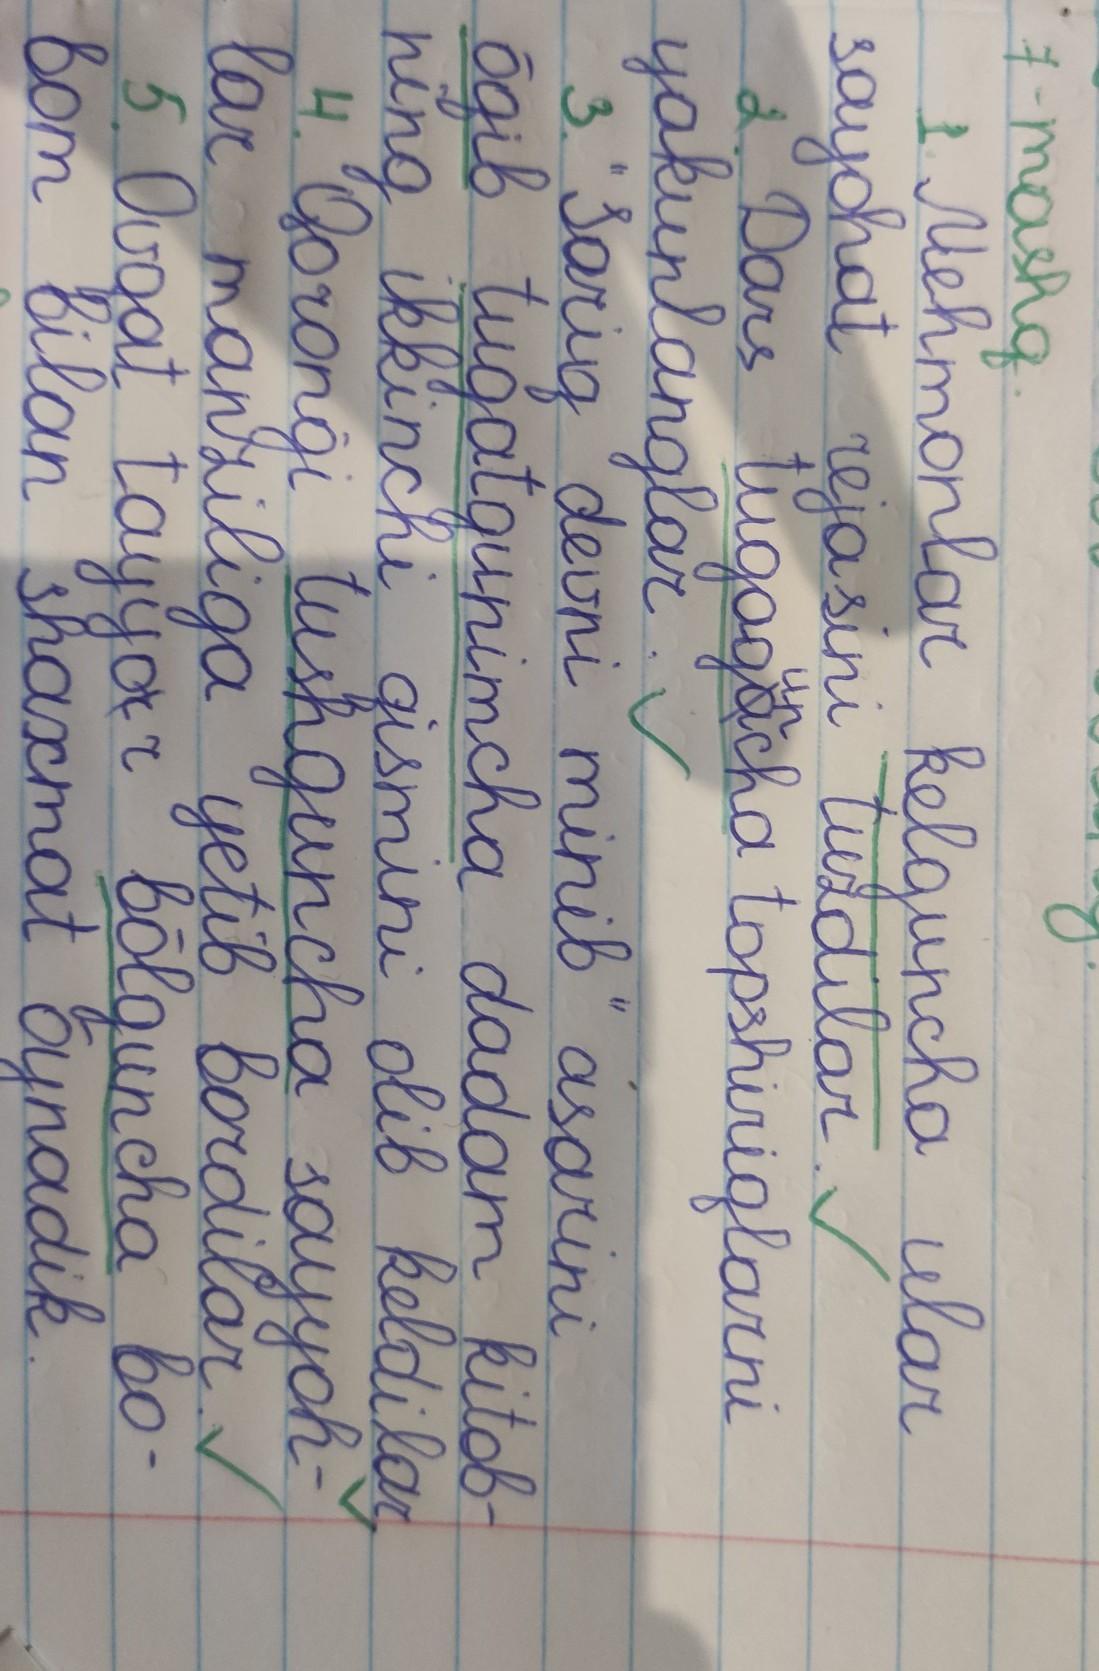 7-mashq.
1. Mehmonlar kelguncha ular
sayohat rejasini tuzdilar.
2. Dars tugaguncha topshiriqlarni
yakunlanglar.
3. "Sariq devni minib" asarini
ōqib tugatgunimcha dadam kitob-
ning ikkinchi qismini olib keldilar
4. Qoronḡi tushguncha sayyoh-
lar manziliga yetib bordilar.
5. Ovqat tayyor bōlguncha bo-
bom bilan shaxmat ōynadik.